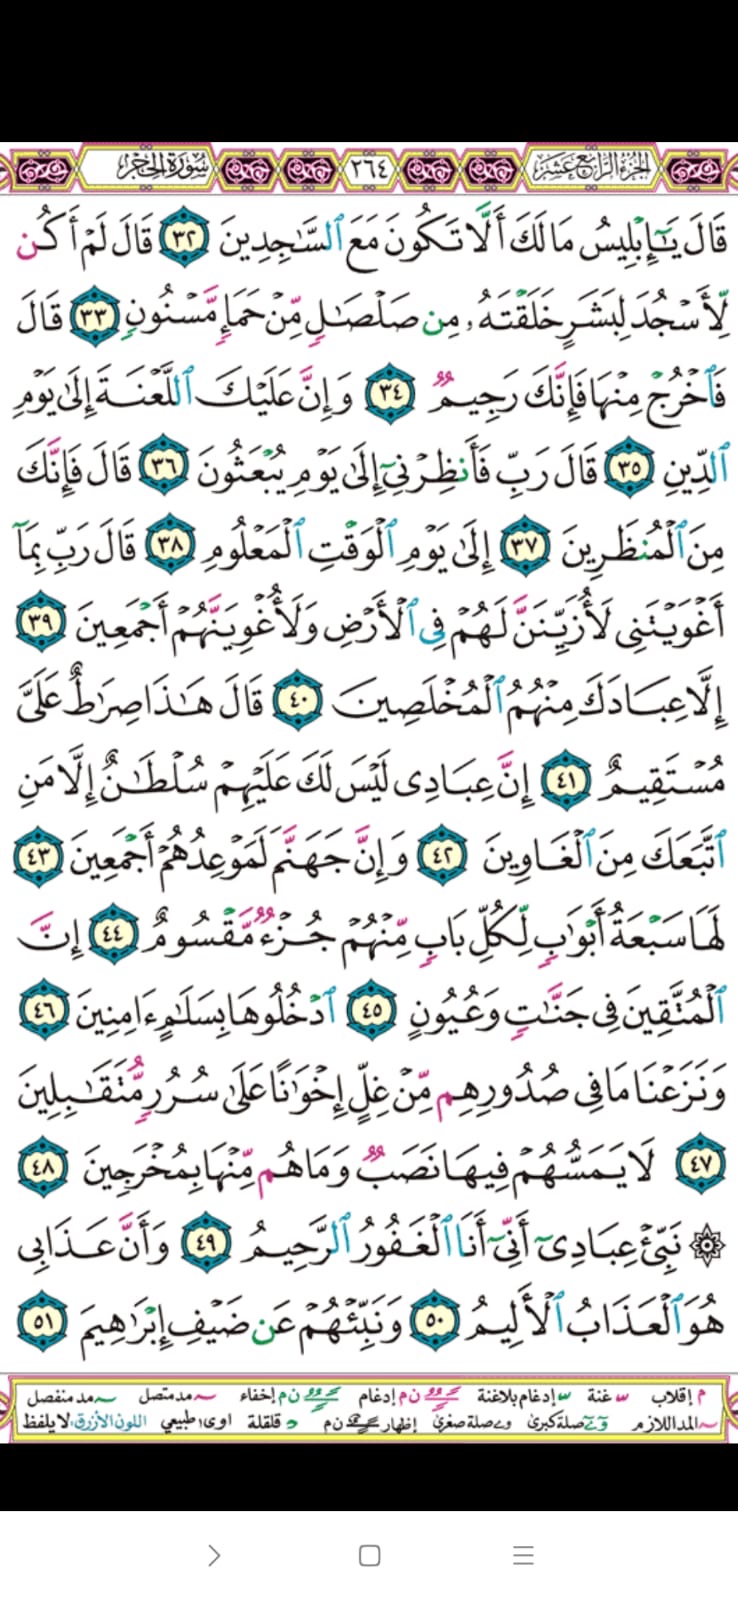 الجزء الرابع عشر ٢٦٤ سورة الحجر
قَالَ يَٰٓإِبۡلِيسُ مَا لَكَ أَلَّا تَكُونَ مَعَ ٱلسَّٰجِدِينَ ٣٢ قَالَ لَمۡ أَكُن
لِّأَسۡجُدَ لِبَشَرٍ خَلَقۡتَهُۥ مِن صَلۡصَٰلٖ مِّنۡ حَمَإٖ مَّسۡنُونٖ ٣٣ قَالَ
فَٱخۡرُجۡ مِنۡهَا فَإِنَّكَ رَجِيمٞ ٣٤ وَإِنَّ عَلَيۡكَ ٱللَّعۡنَةَ إِلَىٰ يَوۡمِ
ٱلدِّينِ ٣٥ قَالَ رَبِّ فَأَنظِرۡنِيٓ إِلَىٰ يَوۡمِ يُبۡعَثُونَ ٣٦ قَالَ فَإِنَّكَ
مِنَ ٱلۡمُنظَرِينَ ٣٧ إِلَىٰ يَوۡمِ ٱلۡوَقۡتِ ٱلۡمَعۡلُومِ ٣٨ قَالَ رَبِّ بِمَآ
أَغۡوَيۡتَنِي لَأُزَيِّنَنَّ لَهُمۡ فِي ٱلۡأَرۡضِ وَلَأُغۡوِيَنَّهُمۡ أَجۡمَعِينَ ٣٩
إِلَّا عِبَادَكَ مِنۡهُمُ ٱلۡمُخۡلَصِينَ ٤٠ قَالَ هَٰذَا صِرَٰطٌ عَلَيَّ
مُسۡتَقِيمٌ ٤١ إِنَّ عِبَادِي لَيۡسَ لَكَ عَلَيۡهِمۡ سُلۡطَٰنٌ إِلَّا مَنِ
ٱتَّبَعَكَ مِنَ ٱلۡغَاوِينَ ٤٢ وَإِنَّ جَهَنَّمَ لَمَوۡعِدُهُمۡ أَجۡمَعِينَ ٤٣
لَهَا سَبۡعَةُ أَبۡوَٰبٖ لِّكُلِّ بَابٖ مِّنۡهُمۡ جُزۡءٞ مَّقۡسُومٌ ٤٤ إِنَّ
ٱلۡمُتَّقِينَ فِي جَنَّٰتٖ وَعُيُونٍ ٤٥ ٱدۡخُلُوهَا بِسَلَٰمٍ ءَامِنِينَ ٤٦
وَنَزَعۡنَا مَا فِي صُدُورِهِم مِّنۡ غِلٍّ إِخۡوَٰنًا عَلَىٰ سُرُرٖ مُّتَقَٰبِلِينَ
٤٧ لَا يَمَسُّهُمۡ فِيهَا نَصَبٞ وَمَا هُم مِّنۡهَا بِمُخۡرَجِينَ ٤٨
۞ نَبِّئۡ عِبَادِيٓ أَنِّيٓ أَنَا ٱلۡغَفُورُ ٱلرَّحِيمُ ٤٩ وَأَنَّ عَذَابِي
هُوَ ٱلۡعَذَابُ ٱلۡأَلِيمُ ٥٠ وَنَبِّئۡهُمۡ عَن ضَيۡفِ إِبۡرَٰهِيمَ ٥١
م إقلاب غنة إدغام بلاغنة ن م إدغام ن م إخفاء مد متصل مد منفصل
المد اللازم صلة كبرى صلة صغرى إظهار ن م قلقلة اوى طبيعي اللون الأزرق لا يلفظ